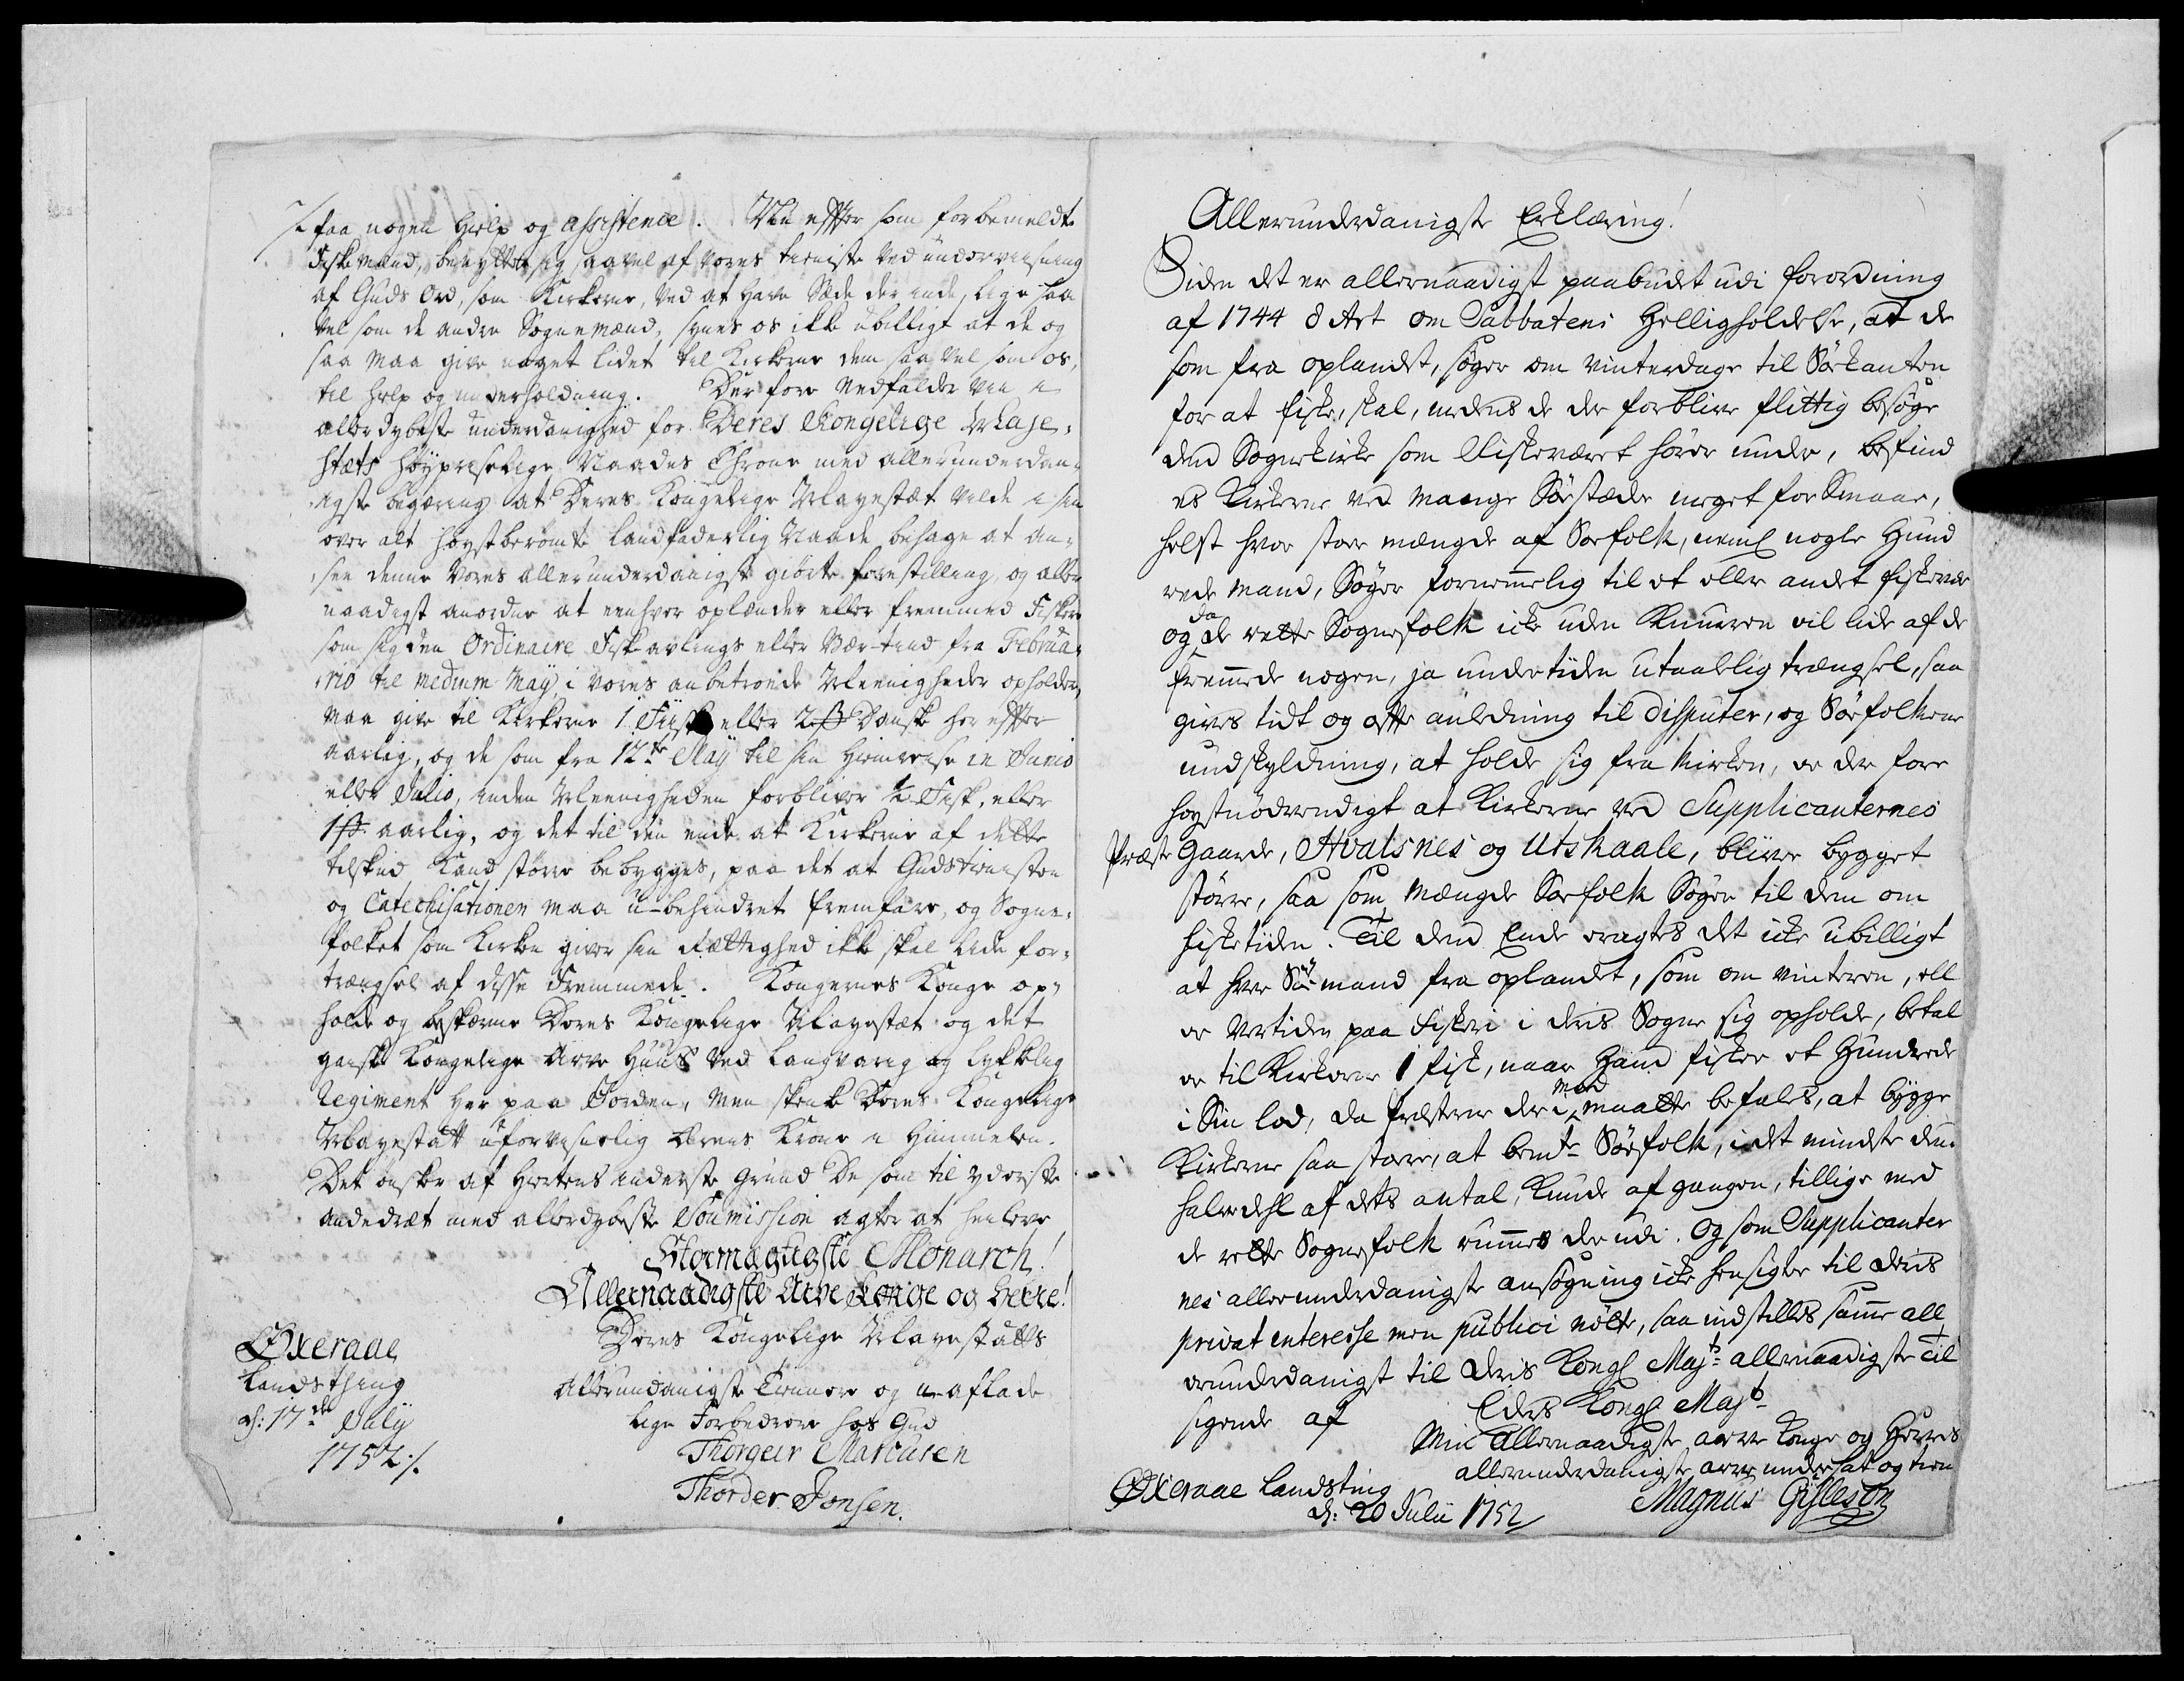 faa nogen hielp og assistence. Nu efter som forbemeldte
Fiskemænd, benytter sig saavel af vores tieniste ved underviisning
af Guds Ord, som Kirkerne, ved at have Sæde der inde, lige saa
vel som de andre Sognemænd, synes os ikke ubilligt at de og
saa maa give noget lidet til Kirkerne dem saa vel som os,
til hielp og underholdning. Derfore nedfalder vii i
allerdybeste underdanighed for Deres Kongelige Maje-
stæts høypriselige Naades Throne med allerunderdan-
igste begæring at Deres Kongelige Mayestæt vilde i sin
over alt høystberømte landfaderlig Naade behage at an-
see denne vores allerunderdanigst giorte forestilling, og aller
naadigst anordne at eenhver oplænder eller fremmed Fisker
som sig den Ordinaire Fiske avlings eller Vær-tiid fra Februa-
rio til medium Maÿ i vores anbetroede Meenigheder opholder,
maa give til Kirkerne 1 Fiisk eller 2 ß Danske her effter
aarlig, og de som fra 12te Maÿ til sin hiemreise in Junio
eller Julio, inden Meenigheden forbliver ½ Fisk, eller
1 ß. aarlig, og det til den ende at Kirkerne af dette
tilskud kand større bebygges, paa det at Gudstienisten
og Catechisationen maa u-behindret fremfare, og Sogne-
folket som Kirken giver sin Rættighed ikke skal lide for-
trængsel af disse Fremmede. Kongernes Konge op-
holde og beskierme Deres Kongelige Mayestæt og det
gandske Kongelige Arve Huus ved langvarig og lykkelig
Regiment her paa Jorden, men skienke Deres Kongelige
Mayestätt uforvisnelig ærens Krone i Himmelen.
Det ønsker af Hiertens inderste grund De som til yderste
andedræt med allerdybeste Soumission agter at henleve
Stormägtigste Monarch!
Allernaadigste Arve Konge og Herre!
Deres Kongelige Mayestätts
Allerundanigste Tienere og u-aflade
lige Forbedere hos Gud
Thorgeir Marcusen
Thorder Jonsen.
Øxeraae
Landsthing
d: 17de Julÿ
1752 ./.
Allerunderdanigste Erklæring!
Siden det er allernaadigst paabudet udi forordning
af 1744 8 Art om Sabbatens Helligholdelse, at de
som fra oplandet, søger om vinterdage til Søekanten
for at fiske, skal, medens de der forblive flittig besøge
den Sognekirke som Fiskeværet hører under, befind
es Kirkerne ved mange Søestæder meget for Smaae,
helst hvor store mængde af Søefolk, neml nogle Hund
rede mand, Søger fornemmelig til et eller andet fiskevær
og da de rette Sognefolk icke uden Knurren vil lide af de
fremmede nogen, ja undertiden utaalelig trængsel, saa
gives tidt og ofte anledning til disputer, og Søefolkene
undskyldning, at holde sig fra kirken, er der fore
høystnødvendigt at Kirkerne ved Supplicanternes
Præste Gaarde, Hvalsnes og Utskaale, bliver bygget
større, saa som mængde Søefolk Søger til dem om
fisketiden. Til den Ende eragtes det icke ubilligt
at hver Søemand fra oplandet, som om vinteren, ell
er vertiden paa fiskeri i deris Sogne sig opholde, betal
er til Kirkerne 1 fisk, naar Hand fisker et Hundrede
i Sin lod, da Præsterne der i mod maatte befales, at bygge
Kirkerne saa store, at bemte Søefolk, i det mindste den
halvedehl af dets antal, kunde af gangen, tillige med
de rette Sognefolk rummes der udi. Og som Supplicanter
nes allerunderdanigste ansøgning icke hensigter til deris
privat interesse men publici nötte, saa indstilles samme all
erunderdanigst til Deris Kongl Majts allernaadigste Til
sigende af
Eders Kongl Majts
Min Allernaadigste arve Konge og Herres
allerunderdanigste arve undersat og tien
Øxeraae Landsting
d: 20 Julii 1752
Magnus Gisleson